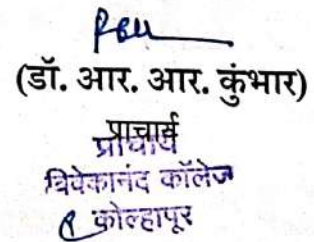 (डॉ. आर. आर. कुंभार)
प्राचार्य
प्राचार्य
विवेकानंद कॉलेज
कोल्हापूर